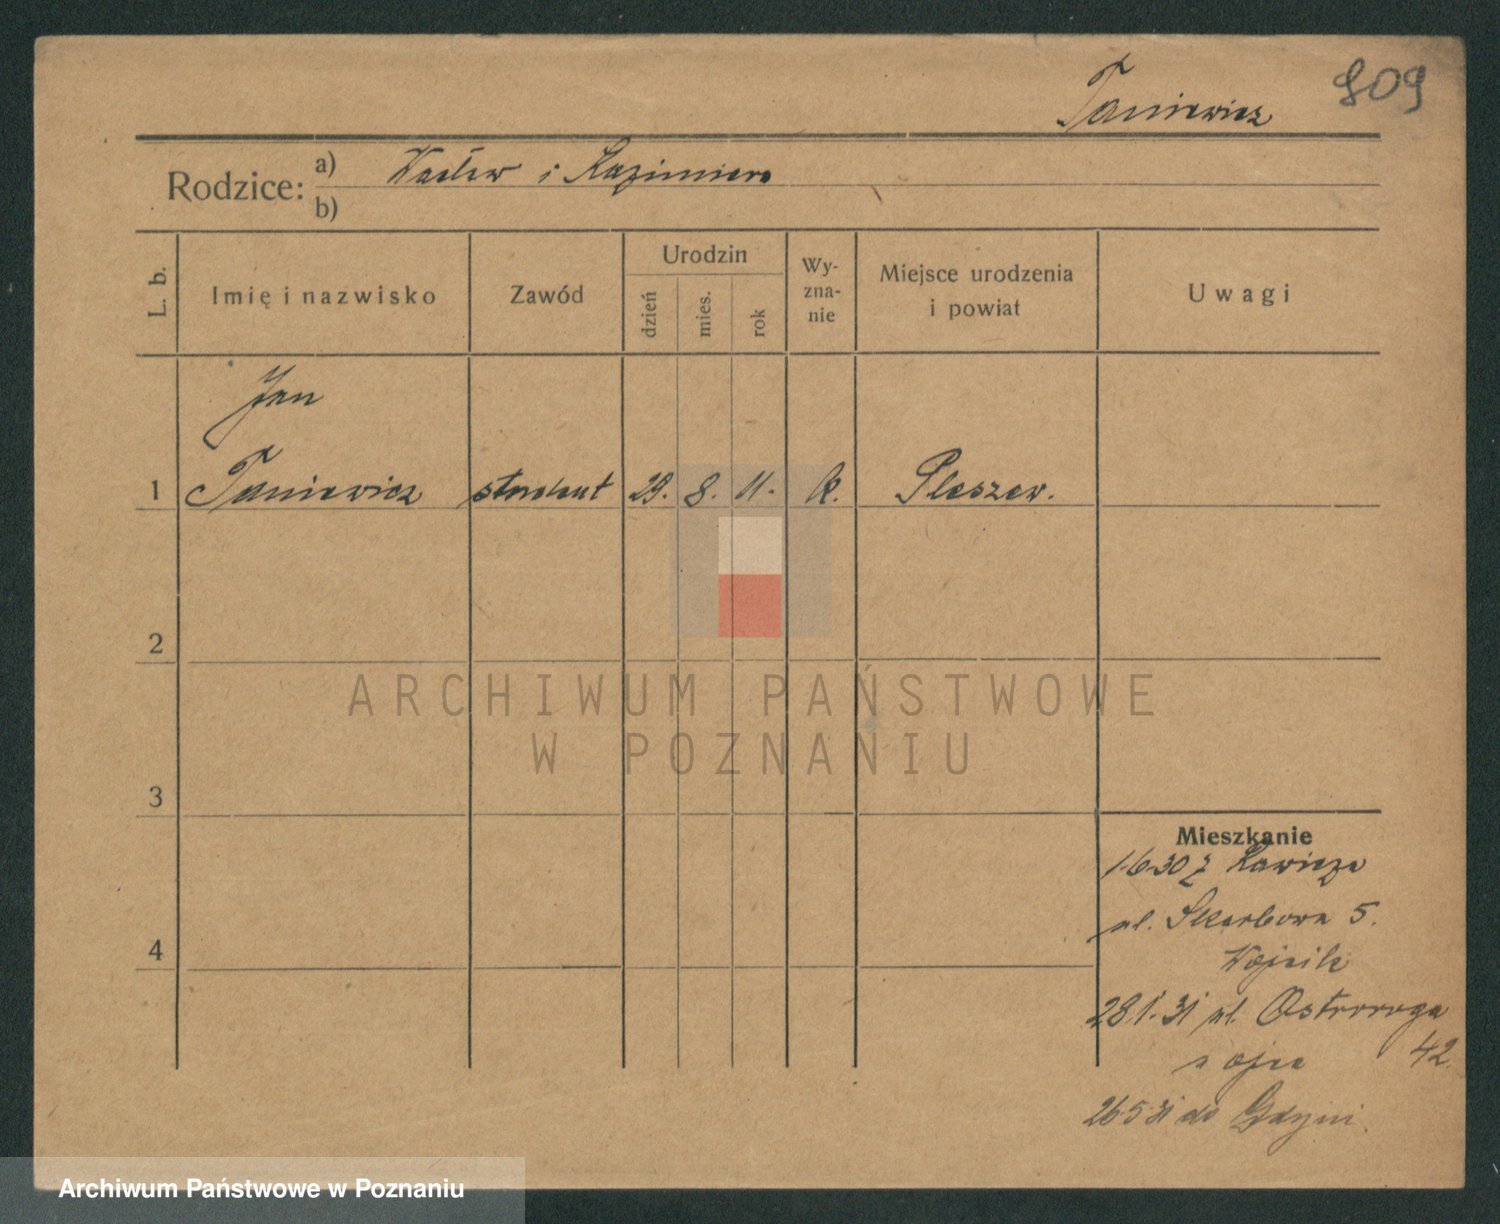 809
Taniewicz
Rodzice:
a) Wacław i Kazimiera
b)
L. b.
Imię i nazwisko
Zawód
Urodzin
dzień
mies.
rok
Wy-
zna-
nie
Miejsce urodzenia
i powiat
Uwagi
Jan
1 Taniewicz student 29. 8. 11. k. Pleszew.
2
3
4
ARCHIWUM PAŃSTWOWE
W POZNANIU
Mieszkanie
1.6.30 z Rawicza
ul. Skarbowa 5.
Wojcik
28.1.31 ul. Ostroroga
42.
u ojca
26.5.31 do Gdyni.
Archiwum Państwowe w Poznaniu